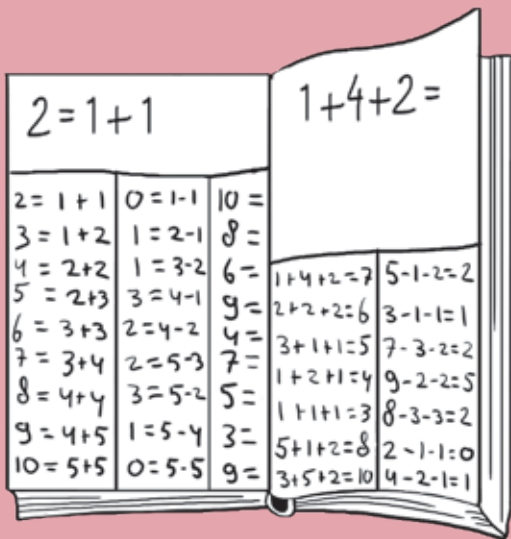 2=1+1
2= 1+1
3=1+2
4=2+2
5=2+3
6=3+3
7=3+4
8=4+4
9=4+5
10=5+5
0=1-1
1=2-1
1=3-2
3=4-1
2=4-2
2=5-3
3=5-2
1=5-4
0=5-5
10=
8=
6=
9=
4=
7=
5=
3=
9=
1+4+2=
1+4+2=7
2+2+2=6
3+1+1=5
1+2+1=4
1+1+1=3
5+1+2=8
3+5+2=10
5-1-2=2
3-1-1=1
7-3-2=2
9-2-2=5
8-3-3=2
2-1-1=0
4-2-1=1